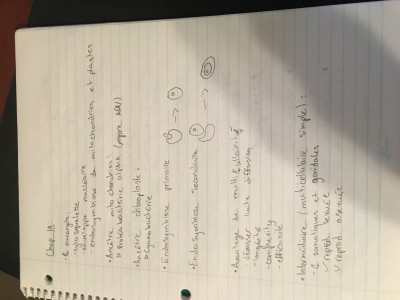 Chap 1A:
• ¢ eucaryote:
- cytosquelette
- enveloppe nucléaire
- endosymbiose de mitochondries et plastes
• Ancêtre mitochondries:
→ Protéobactérie alpha (propre ADN)
• Ancêtre chloroplaste:
→ Cyanobactérie
• Endosymbiose primaire
• Endosymbiose secondaire
• Avantage de multicellularité
- dépasser limite diffusion
- longévité
- complexité
- efficacité
• Intermédiaire (multicellulaire simple):
- ¢ somatiques et gonidales
✓ reprod. sexuée
✓ reprod. asexuée